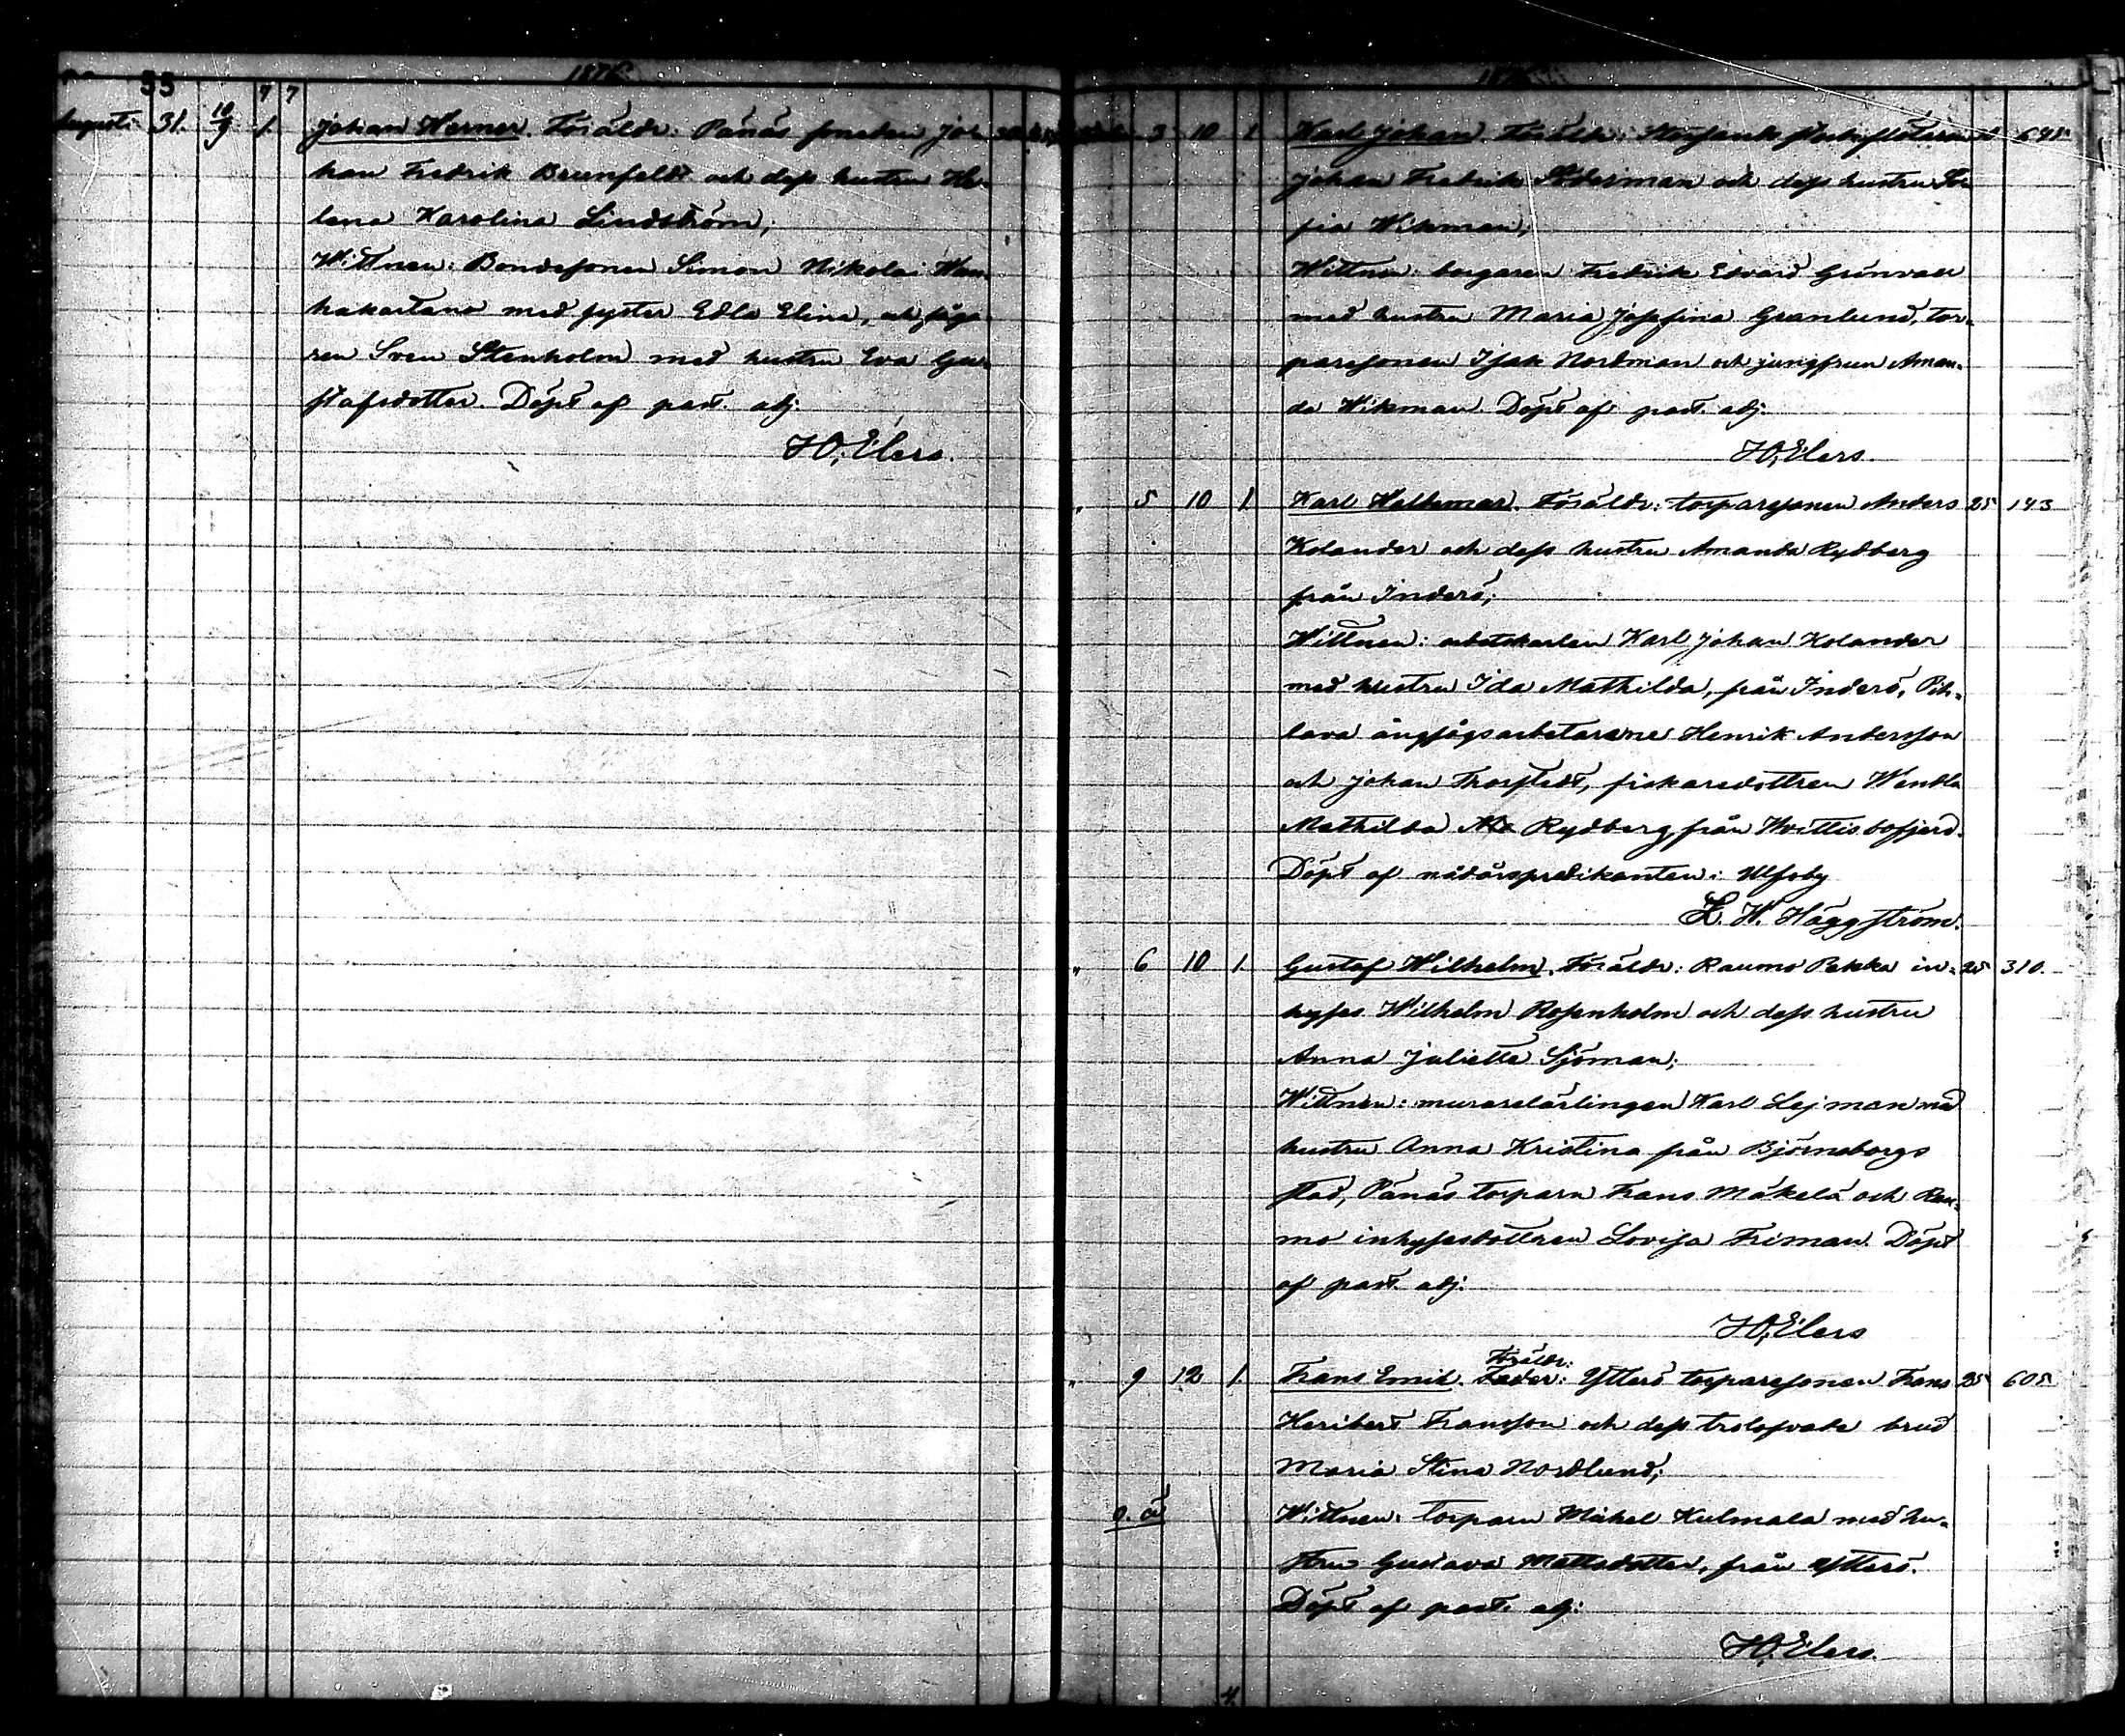 55 1876
7 7
Augusti 31. 10/9 1. Johan Werner. Föräldr: Pånäs sonsonen Jo-
han Fredrik Brunfeldt och dess hustru He-
lena Karolina Lindström;
Wittnen: Bondesonen Simon Nikolai Wan-
hakartano med syster Edla Elina, och
Sven Stenholm med hustru Eva Gu-
stafsdotter. Döpt af past. adj.
H. O. Elers.
3 10 1 Karl Johan. Föräldr: 645.
Johan Fredrik Söderman och dess hustru So-
fia Wikman;
Wittnen: borgaren Fredrik Edvard Grönvall
med hustru Maria Josefina Granlund, tor-
paresonen Isak Nordman och jungfrun Aman-
da Wikman. Döpt af past. adj.
H. O. Elers.
" 5 10 1. Karl Waldemar. Föräldr: torparesonen Anders 25 143
Kolander och dess hustru Amanda Rydberg
från Inderö;
Wittnen: arbetskarlen Karl Johan Kolander
med hustru Ida Mathilda, från Inderö, Pih-
lava ångsågsarbetarene Henrik Andersson
och Johan Thorstedt, fiskaredottren Wendla
Mathilda Rydberg från Hvittisbofjerd.
Döpt af nådårspredikanten i Ulfsby
L. H. Häggström.
" 6 10 1. Gustaf Wilhelm. Föräldr: Raumo Pekka in- 25 310.
hyses Wilhelm Rosenholm och dess hustru
Anna Julietta Sjöman;
Wittnen: murarelärlingen Karl Lejman med
hustru Anna Kristina från Björneborgs
stad, Pånäs torparn Frans Mäkelä och Rau-
mo inhysesdottren Lovisa Friman. Döpt
af past. adj.
H. O. Elers
Föräldr:
" 9 12 1. Frans Emil. Fader: Ytterö torparesonen Frans 25 605
Heribert Fransson och dess trolofvade brud
Maria Stina Nordlund;
o. ä Wittnen: torparn Mikel Kulmala med hu-
stru Gustava Mattsdotter, från Ytterö.
Döpt af past. adj:
H. O. Elers.
4